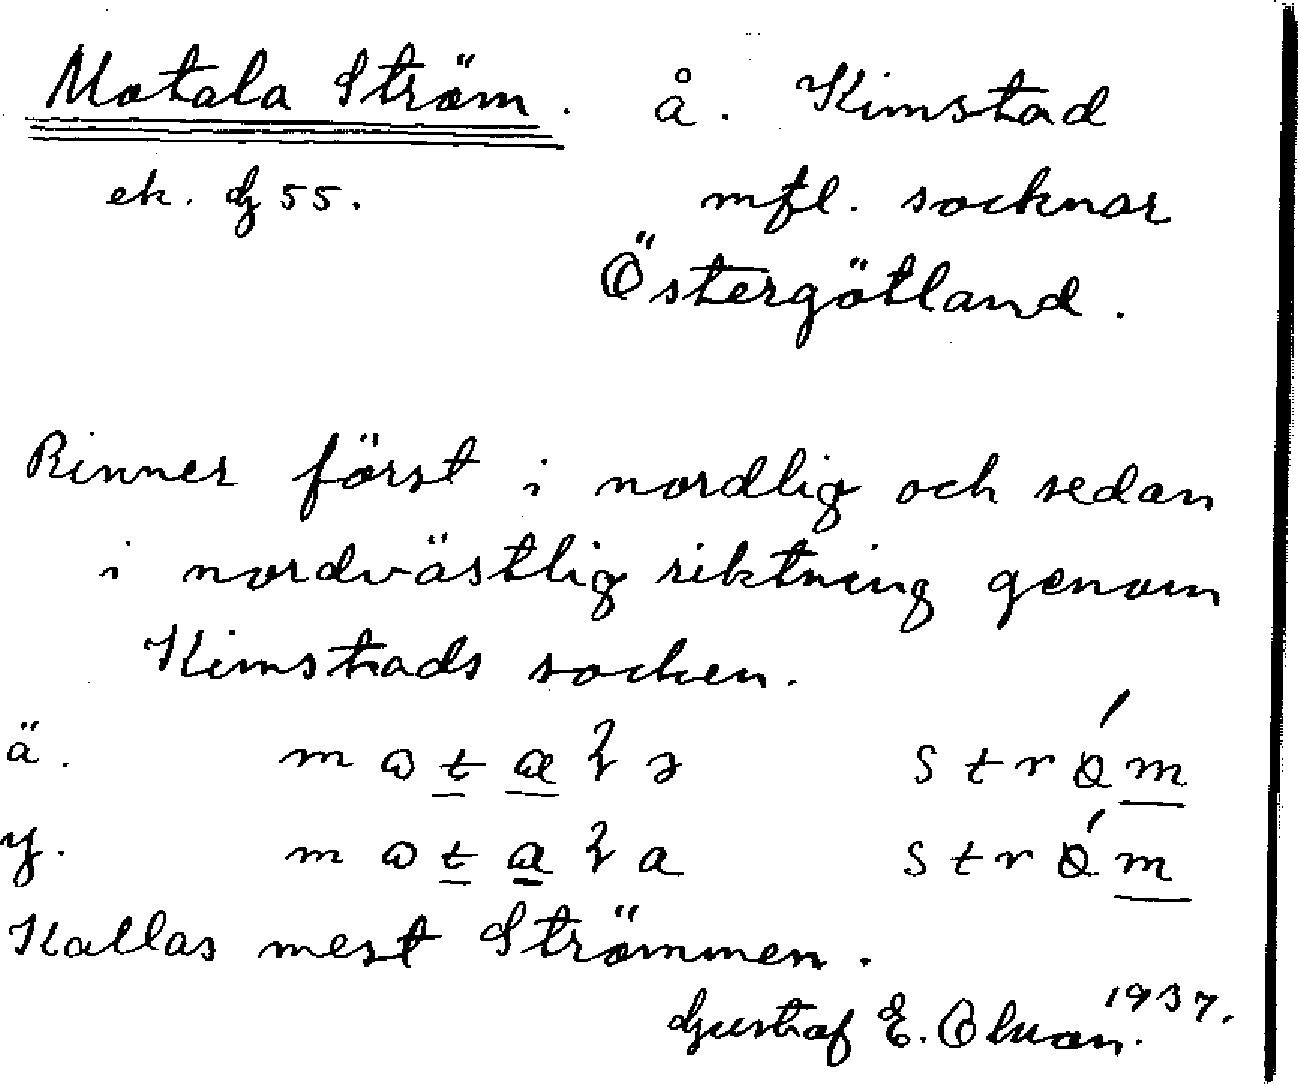 Motala Ström. å. Kimstad
ek. dj 55. mfl. socknar
Östergötland.
Rinner först i nordlig och sedan
i nordvästlig riktning genom
Kimstads socken.
ä.
y.
Kallas mest Strömmen.
Gustaf E. 1937.